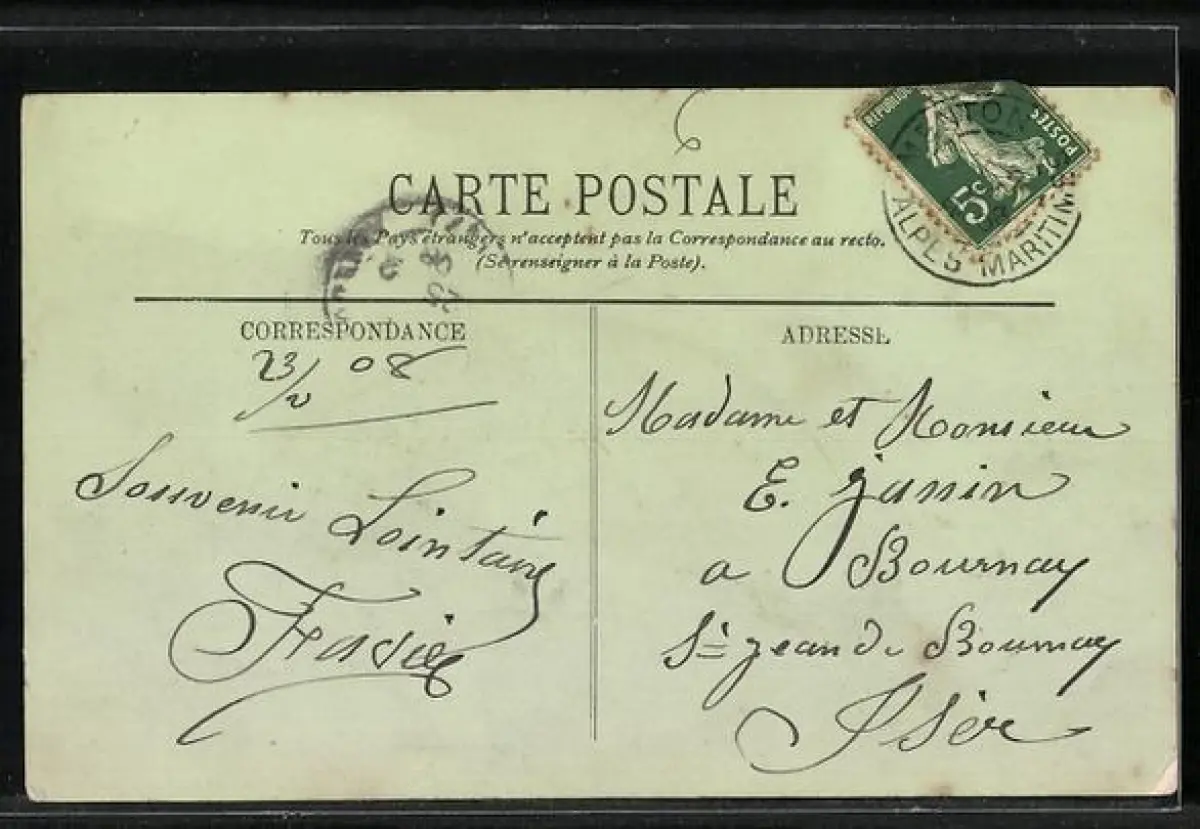 CARTE POSTALE
Tous les Pays étrangers n'acceptent pas la Correspondance au recto.
(Se renseigner à la Poste).
RÉPUBLIQUE
POSTES
5c
MENTON
ALPES MARITIM
CORRESPONDANCE
23/2 08
Souvenir Lointain
ADRESSE
Madame et Monsieur
E. Janin
a Bournay
St Jean de Bournay
Isère